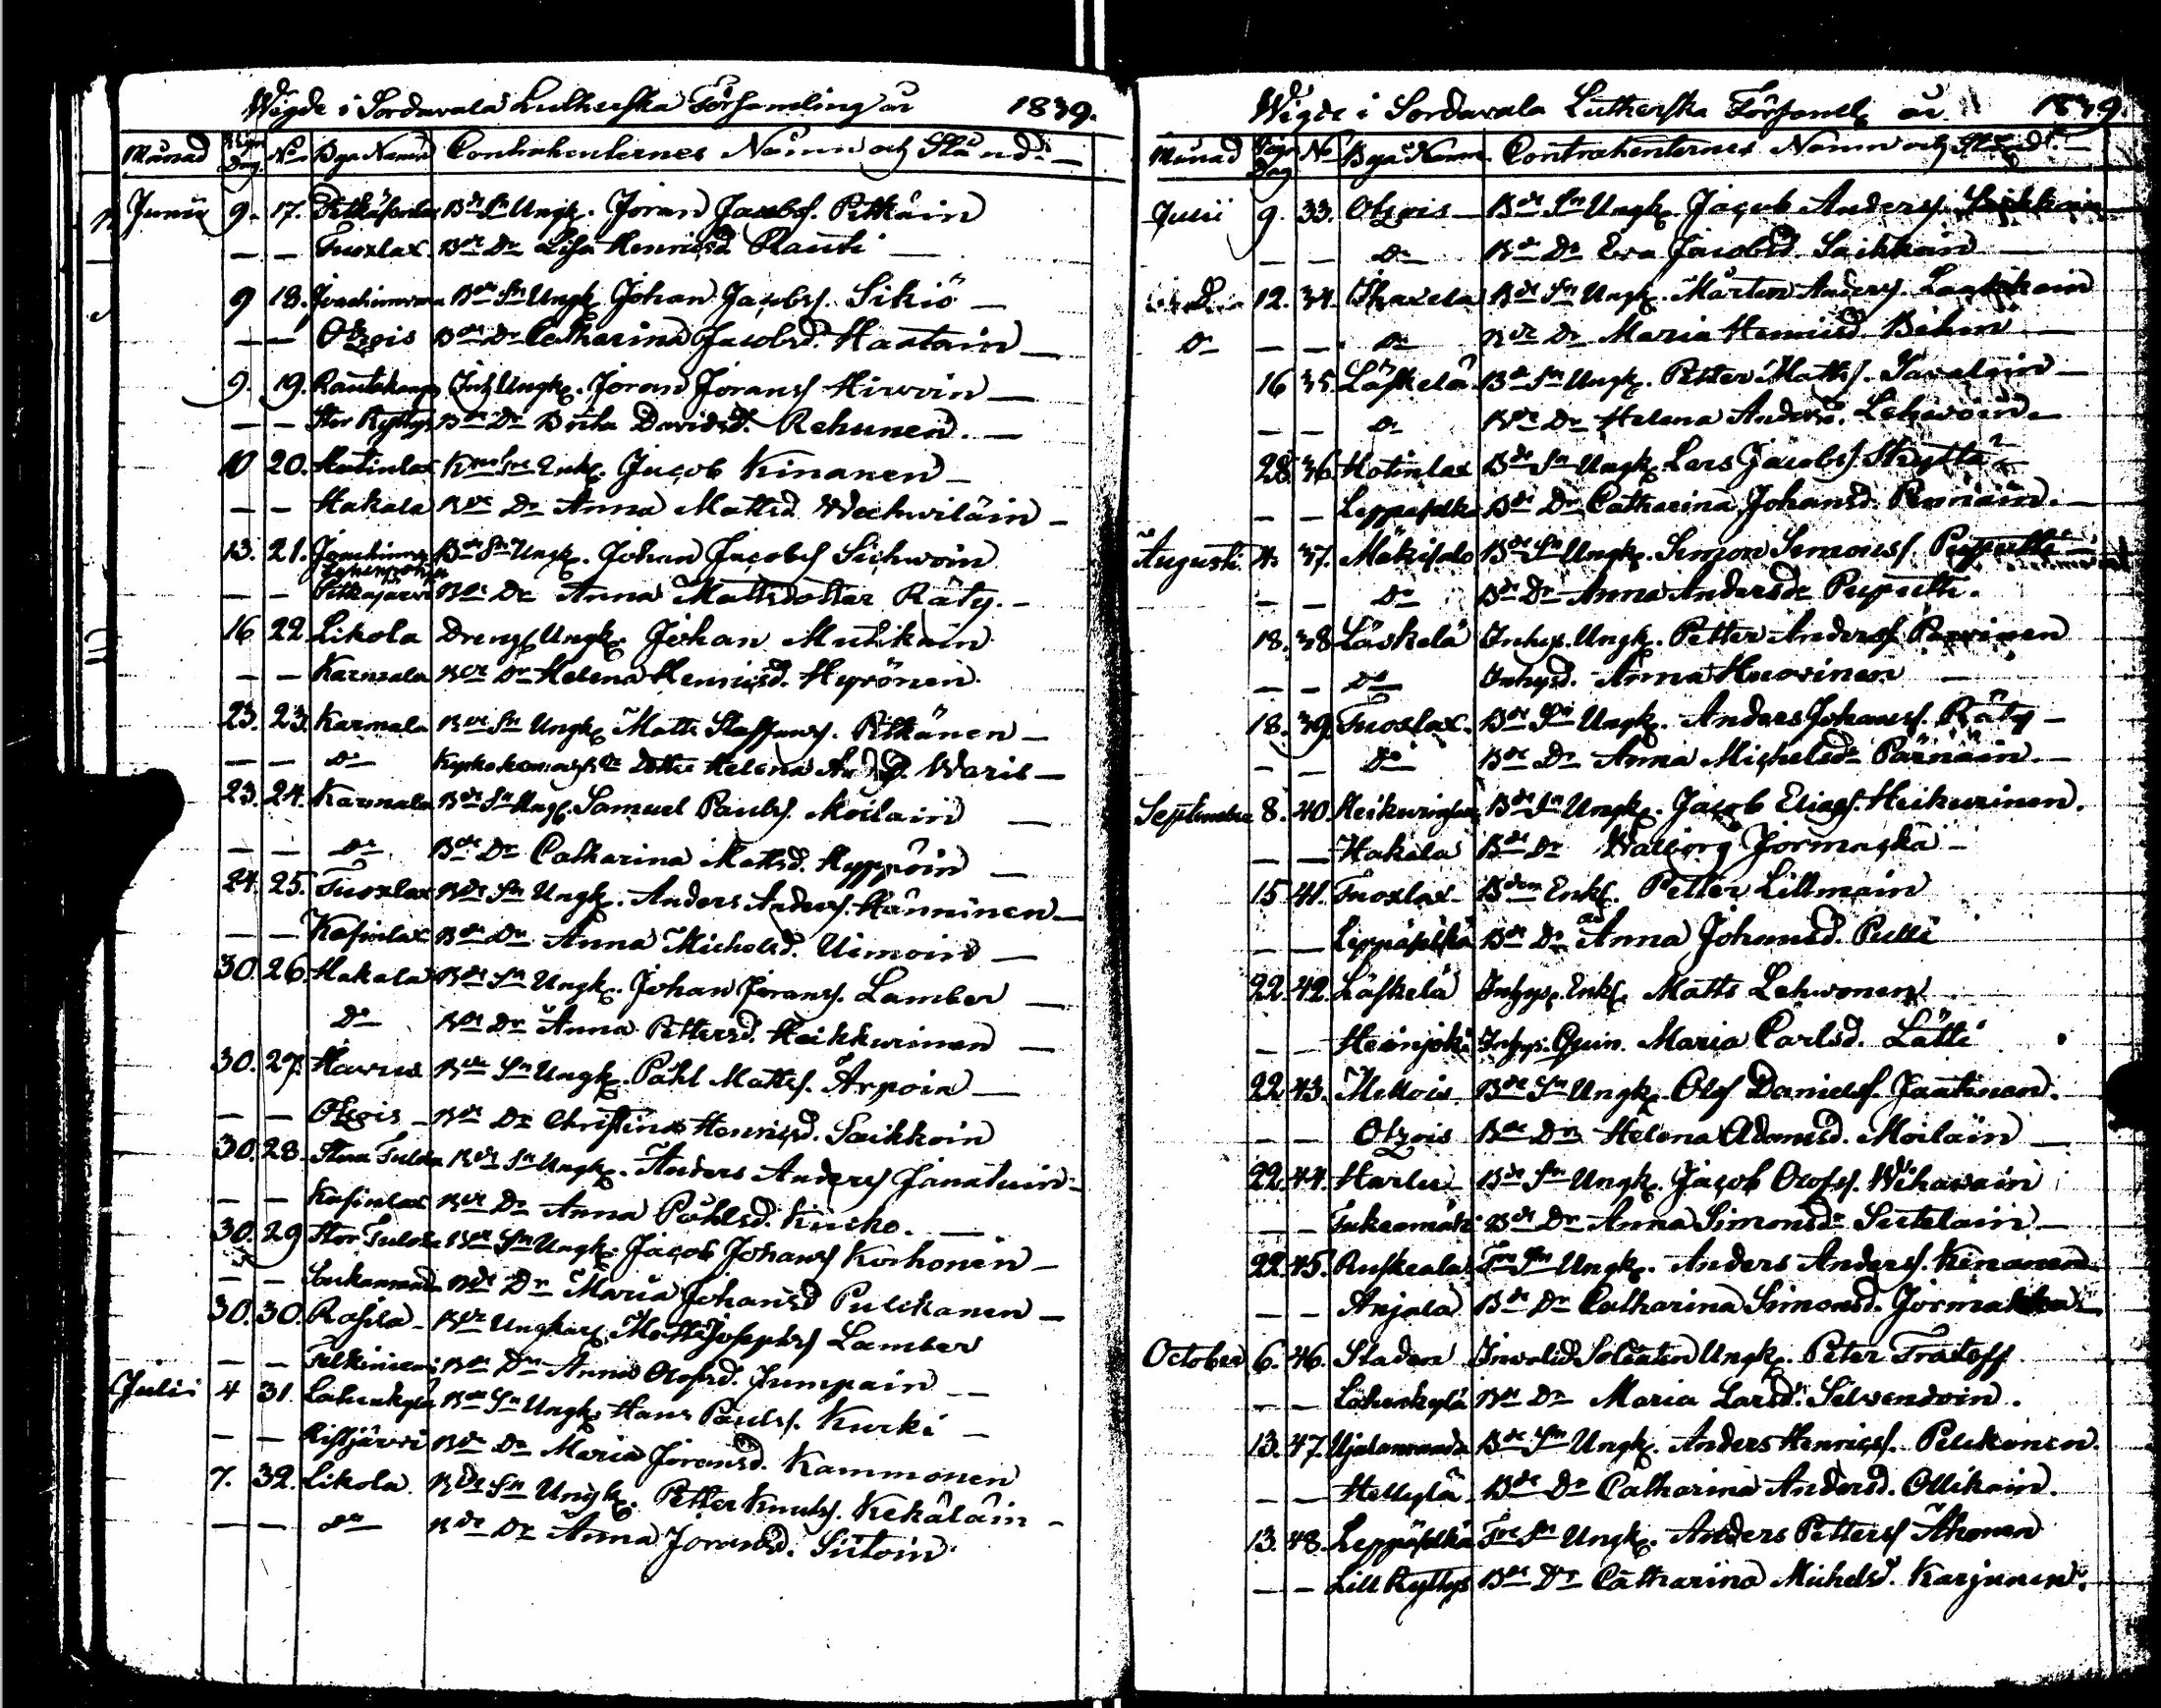 Wigde i Sordavala Lutherska Församling år 1839.
Månad Wign. Dag. No Bya Namn Contrahenternes Namn och Stånd. —
Junii 9. 17. Bde Sn Ungk. Jöran Jacobss. Pitkäin
— — Tuoxlax Bde Dr Lisa Henricsd. Rauti —
9 18. Joachimvara Bde Sn Ungk. Johan Jacobss. Sikiö —
— — Otzois Bde Dr Catharina Jacobsd. Haatain —
9. 19. Rautakangas Inh. Ungk. Jöran Jöranss. Hirvoin —
— — Stor Ryttys Bde Dr Brita Davidsd. Rehunen. —
10 20. Hotinlax Enkl. Jacob Kinanen —
— — Hakala Bde Dr Anna Mattsd. Wechviläin —
13. 21. Joachimvara Bde Sn Ungk. Johan Jacobss. Sichvoin
— — Pitkäjärvi Bde Dr Anna Mattsdotter Räty. —
16 22. Likola Drengs Ungk. Johan Mutikain
— — Karmala Bde Dr Helena Henricsd. Hyrönen.
23. 23. Karmala Bde Sn Ungk. Matts Staffanss. Pitkänen —
— — Do Dotter Helena And. D. Waris —
23. 24. Karmala Bde Sn Ungk. Samuel Paulss. Moilain —
— — Do Bde Dr Catharina Mattsd. Hyppöin —
24. 25. Tuoxlax Bde Sn Ungk. Anders Anderss. Hänninen —
— — Kosinlax Bde Dr Anna Michelsd. Uimoin —
30. 26. Hakala Bde Sn Ungk. Johan Jöranss. Lamber —
Do Bde Dr Anna Pettersd. Heikkurinen —
30. 27. Havus Bde Sn Ungk. Påhl Mattss. Arpoin —
— — Otzois — Bde Dr Christina Henricsd. Saikkoin
30. 28. Stora Tulola Bde Sn Ungk. Anders Anderss. Janatuin —
— — Kosinlax Bde Dr Anna Påhlsd. Kucko. —
30. 29 Stor Tulola Bde Sn Ungk. Jacob Johanss. Korhonen —
— — Bde Dr Maria Johansd. Pulckanen —
30. 30. Rosila — Bde Ungkarl Matts Josephss. Lamber
— — Telkiniemi Bde Dr Anna Olofsd. Jumpain —
Julii 4 31. Lahenkylä Bde Sn Ungk. Hans Paulss. Kurki —
— — Ristjärvi Bde Dr Maria Jöransd. Kammonen
7. 32. Likola Bde Sn Ungk. Petter Knutss. Kekäläin —
— — Do Bde Dr Anna Jöransd. Siitoin
Wigde i Sordavala Lutherska Församl. år 1839.
Månad Wign. Dag No Bya Namn Contrahenternes Namn och Stånd. —
Julii 9. 33. Otzois — Bde Sn Ungk. Jacob Anderss.
— — Do Bde Dr Eva Jacobsd. Saikkain —
12. 34. Thaxela Bde Sn Ungk. Mårten Anderss. Laakkain
Do — — Do Bde Dr Maria Henricsd. Böhm —
16 35. Läskelä Bde Sn Ungk. Petter Mattss. Savalain —
— — Do Bde Dr Helena Andersd. Lehvoin —
28. 36. Hotinlax Bde Sn Ungk. Lars Jacobss. Skyttä —
— — Leppäselkä Bde Dr Catharina Johansd. —
Augusti 4. 37. Mäkisalo Bde Sn Ungk. Simon Simonss. Puputti —
— — Do Bde Dr Anna Andersd. Puputti.
18. 38 Läskelä Inhys. Ungk. Petter Anderss. Parvinen
— — Do Inhysd. Anna Huovinen —
18. 39. Tuoxlax. Bde Sn Ungk. Anders Johanss. Räty —
— — Do Bde Dr Anna Michelsd. Pärnäin. —
September 8. 40. Bde Sn Ungk. Jacob Eliass. Heikurinen.
— — Hakala Bde Dr Walborg Jormaska —
15 41. Tuoxlax — Enkl. Petter Littmain
— — Leppäselkä Bde Dr Anna Johansd. Pulli
22. 42. Läskelä Inhys. Enkl. Matts Lehvonen
— — Heinjoki Inhys. Quin. Maria Carlsd. Lätti
22 43. Mellois Bde Sn Ungk. Olof Danielss. Jaatinen.
— — Otzois Bde Dr Helena Adamsd. Moilain —
22. 44. Harlu Bde Sn Ungk. Jacob Olofss. Wihavain
— — Tukianmäki Bde Dr Anna Simonsd. Sutelain —
22. 45. Ruskeala Ungk. Anders Anderss. Kinanen
— — Anjala Bde Dr Catharina Simonsd.
October 6. 46. Staden Invalid Soldaten Ungk. Peter Tratoff
— — Lahenkylä Bde Dr Maria Larsd. Silvendoin.
13. 47. Bde Sn Ungk. Anders Henricss. Pulckonen.
— — Helylä Bde Dr Catharina Andersd. Ollikain.
13. 48. Leppäselkä Ungk. Anders Petterss. Ahonen
— — Lill Ryttys Bde Dr Catharina Michelsd. Karjunen.